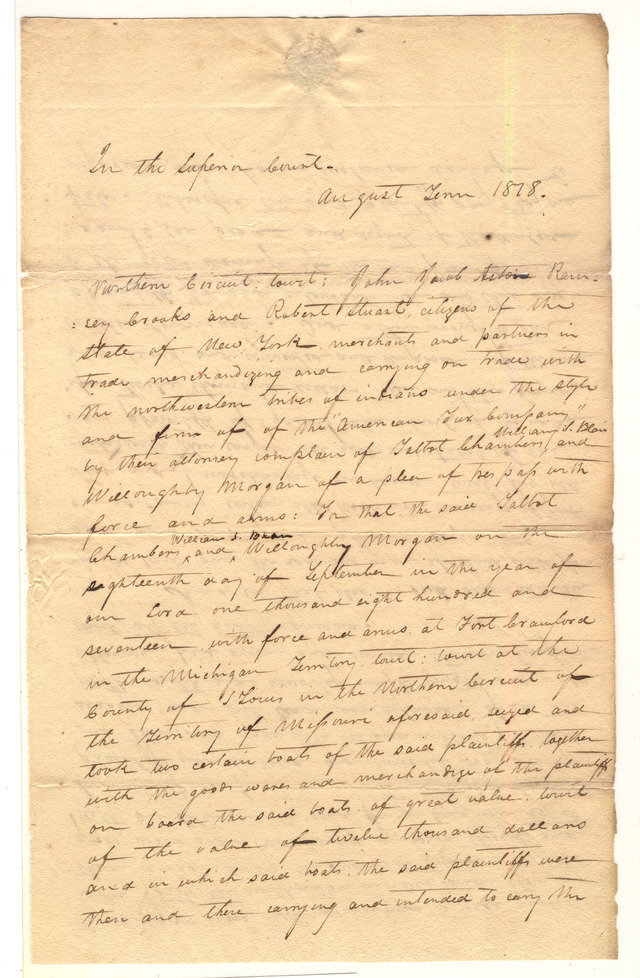 In the Superior Court.
August Term 1818.
Northern Circuit: towit: John Jacob Astor Ram-
:sey Crooks and Robert Stuart, citizens of the
State of New York merchants and partners in
trade merchandizing and carrying on trade with
the northwestern tribes of indians under the style
and firm of of the "American Fur Company"
by their attorney complain of Talbot Chambers, William S. Blair and
Willoughby Morgan of a plea of trespass with
force and arms: For that the said Talbot
Chambers William S. and Willoughby Morgan on the
eighteenth day of September in the year of
our Lord one thousand eight hundred and
seventeen with force and arms. at Fort Crawford
in the Michigan Territory. towit: towit at the
County of St Louis in the Northern Circuit of
the Territory of Missouri aforesaid, seized and
took two certain boats of the said plaintiffs, together
with the goods wares and merchandize of the plaintiffs
on board the said boats. of great value. towit
of the value of twelve thousand dollars
and in which said boats, the said plaintiffs were
then and there carrying and intended to carry the